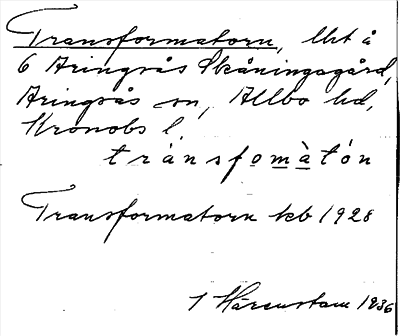 Transformatorn, lht å
6 Aringsås Skåningsgård,
Aringsås sn, Allbo hd,
Kronobs l.
tránsfo̲mà̲tón
Transformatorn kb 1928
1 Härenstam 1936